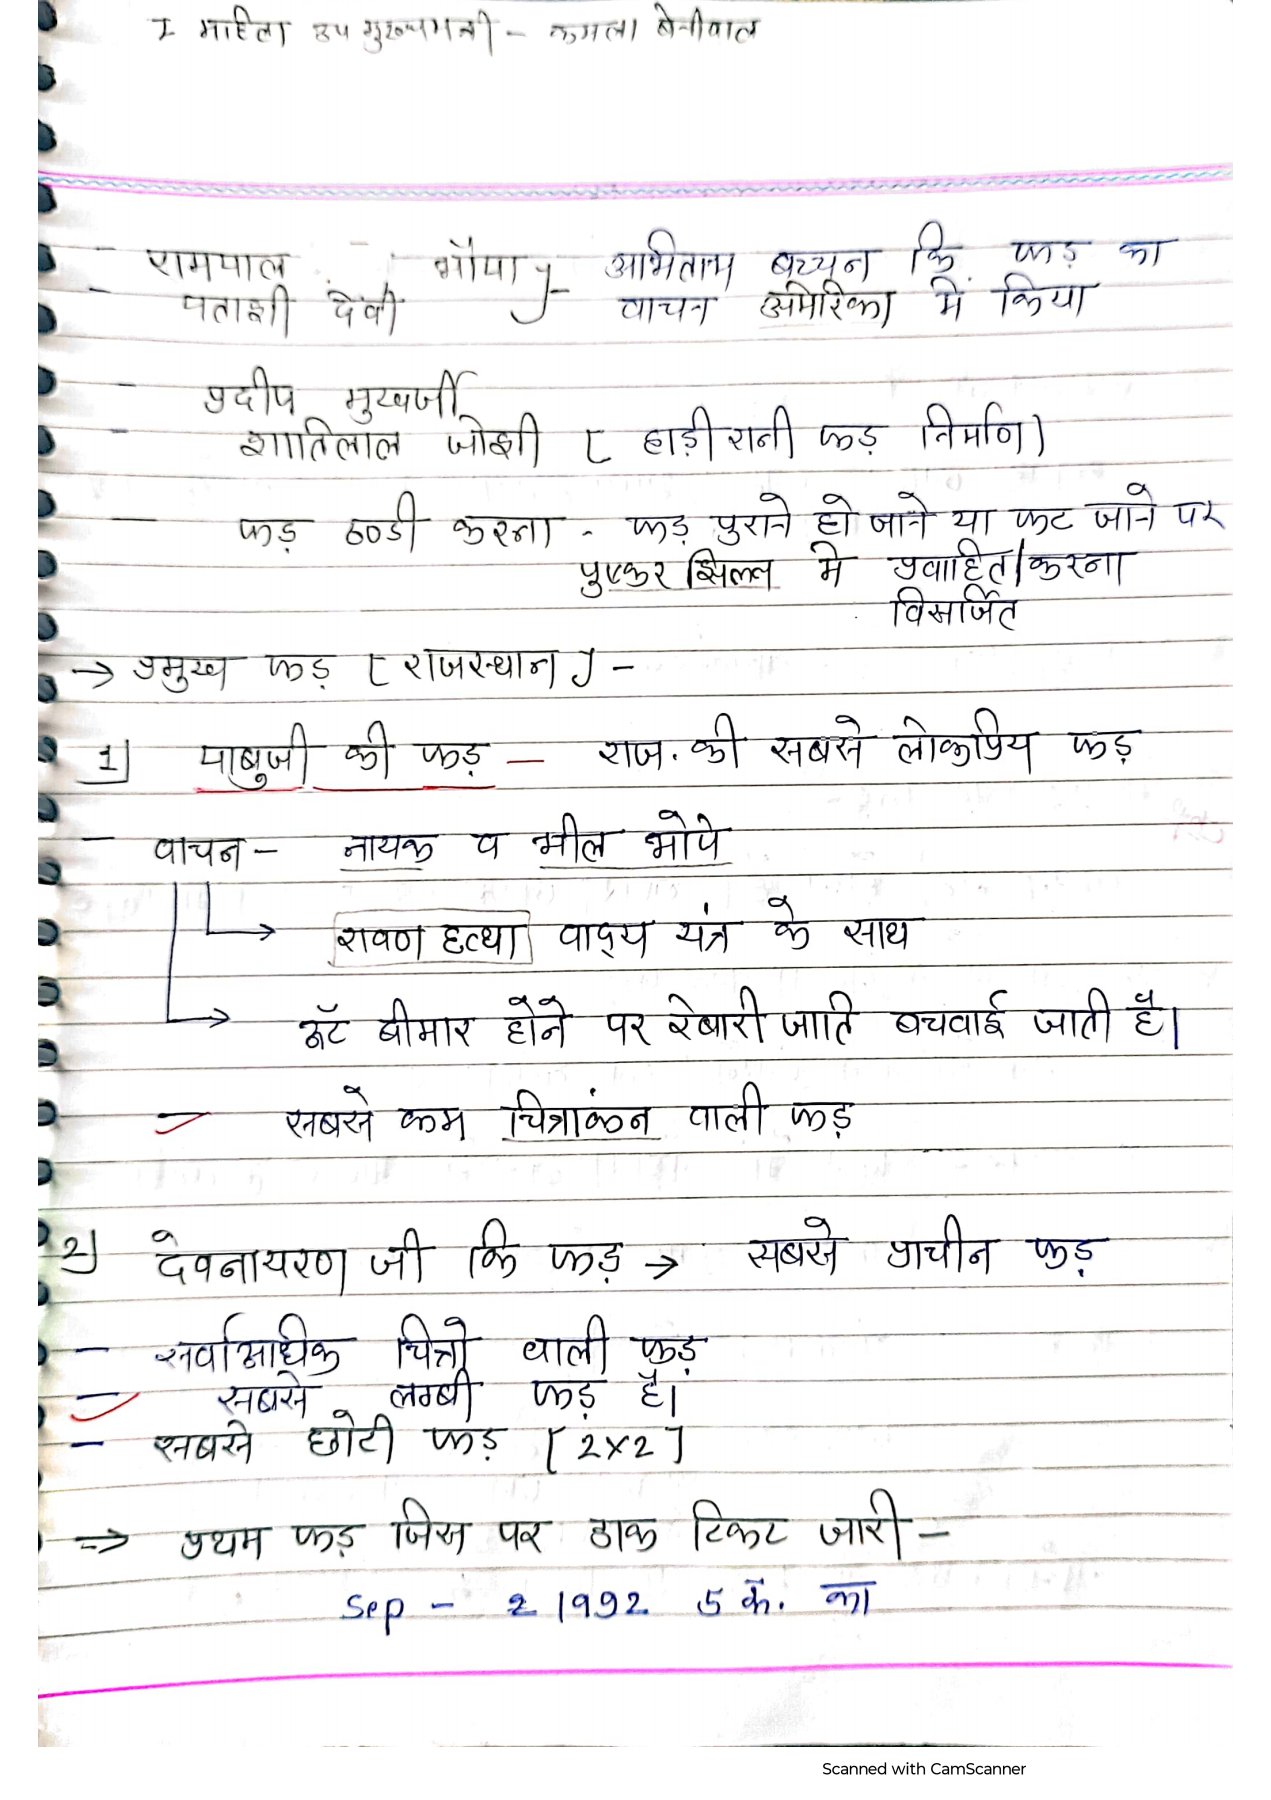 I महिला उप मुख्यमंत्री - कमला बेनीवाल
- रामपाल भोपा ]- अभिताभ बच्चन कि फड़ का
- पताशी देवी वाचन अमेरिका में किया
- प्रदीप मुखर्जी
- शातिलाल जोशी [ हाड़ी रानी फड़ निर्माण )
- फड़ ठण्डी करना - फड़ पुराने हो जाने या फट जाने पर
पुष्कर झिल्ल मे प्रवाहित/करना
विसर्जित
→ प्रमुख फड़ [ राजस्थान ] -
1] पाबुजी की फड़ - राज. की सबसे लोकप्रिय फड़
- वाचन - नायक व भील भोपे
→ रावण हत्था वाद्य यंत्र के साथ
→ ऊँट बीमार होने पर रेबारी जाति बचवाई जाती है।
- सबसे कम चित्रांकन वाली फड़
2] देवनायरण जी कि फड़ → सबसे प्राचीन फड़
- सर्वाअधिक चित्रो वाली फड़
- सबसे लम्बी फड़ है।
- सबसे छोटी फड़ [ 2x2 ]
⇒ प्रथम फड़ जिस पर डाक टिकट जारी -
Sep - 2 1992 5 रू. का
Scanned with CamScanner